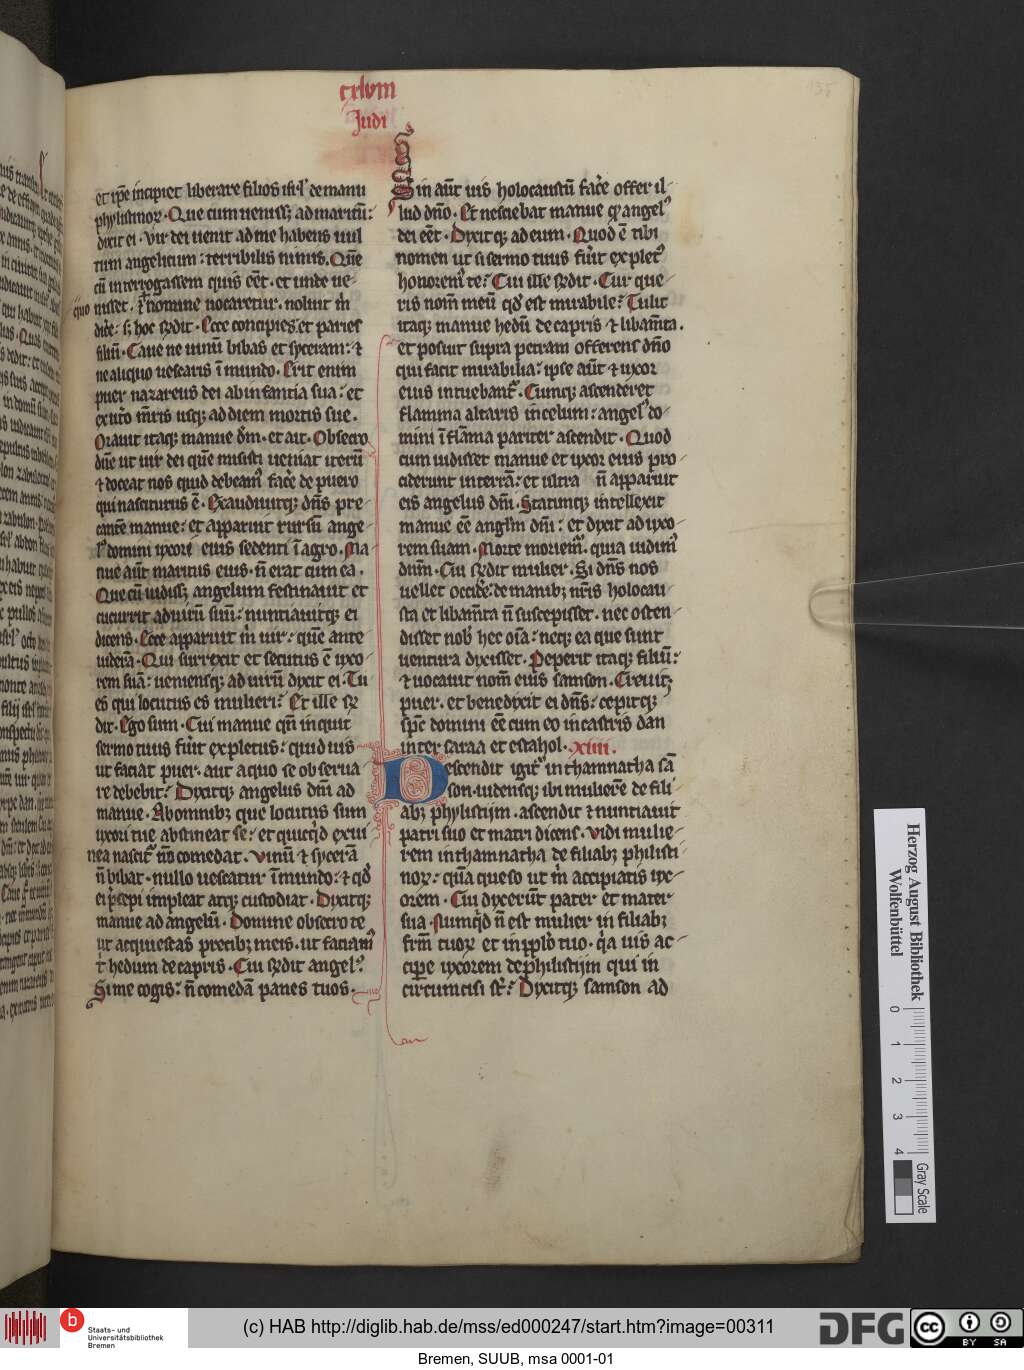 cxlvm
Judi
et ip̄e incipiet liberare filios isr̄l de manu
phylistinoꝝ. Que cum ueniss; ad maritū:
dixit ei. Vir dei uenit ad me habens uul
tum angelicum: terribilis nimis. Quē
cū interrogassem quis eēt. et unde ue-
nisset. ꝛ quo nomine uocaretur. noluit m̄
dic̄e: s; hoc rn̄dit. Ecce concipies. et paries
filiū. Caue ne uinū bibas et syceram: ꝛ
ne aliquo uescaris īmundo. Erit enim
puer nazareus dei ab infantia sua: et
ex utō mr̄is usq; ad diem mortis sue.
Orauit itaq; manue dm̄. et ait. Obsecro
dn̄e ut uir dei quē misisti ueniat iterū
ꝛ doceat nos quid debeamꝰ fac̄e de puero
qui nasciturus ē. Exaudiuitq; dn̄s pre-
cantē manue: et apparuit rursū ange-
lꝰ domini uxori eius sedenti ī agro. Ma-
nue aūt maritus eius. n̄ erat cum ea.
Que cū uidiss; angelum festinauit et
cucurrit ad uirū suū: nuntiauitq; ei
dicens. Ecce apparuit m̄ uir: quē ante
uiderā. Qui surrexit et secutus ē uxo-
rem suā: ueniensq; ad uirū dixit ei. Tu
es qui locutus es mulieri? Et ille rn̄
dit. Ego sum. Cui manue qn̄ inquit
sermo tuus fūit expletus: quid uis
ut faciat puer. aut a quo se obserua
re debebit? Dyxitq; angelus dn̄i ad
manue. Ab omnib; que locutus sum
uxori tue abstineat se: et quicq̄d ex ui
nea nascit̄ nō comedat. Vinū ꝛ sycerā
n̄ bibat. nullo uescatur īmundo: ꝛ qd̄
ei p̄cepi impleat atq; custodiat. Dyxitq;
manue ad angelū. Domine obsecro te
ut acquiescas precib; meis. ut faciamꝰ
t̄ hedum de capris. Cui rn̄dit angelꝰ.
Si me cogis: n̄ comedā panes tuos.
Sin aūt uis holocaustū fac̄e offer il-
lud dn̄o. Et nesciebat manue qꝫ angelꝰ
dei eēt. Dyxitq; ad eum. Quod ē tibi
nomen ut si sermo tuus fūit expletꝰ
honoremꝰ te? Cui ille rn̄dit. Cur que-
ris nom̄ meū qd̄ est mirabile? Tulit
itaq; manue hedū de capris ꝛ libam̄ta.
et posuit supra petram offerens dn̄o
qui facit mirabilia: ipse aūt ꝛ uxor
eius intuebant̄. Cumq; ascenderet
flamma altaris in celum: angelꝰ do-
mini ī flāma pariter ascendit. Quod
cum uidisset manue et uxor eius pro-
ciderunt in terrā: et ultra n̄ apparuit
eis angelus dn̄i. Statimq; intellexit
manue eē angl̄m dn̄i: et dyxit ad uxo-
rem suam. Morte moriem̄. quia uidimꝰ
dn̄m. Cui rn̄dit mulier. Si dn̄s nos
uellet occid̄e: de manib; nr̄is holocau-
sta et libam̄ta n̄ suscepisset. nec osten-
disset nob̄ hec oīa: neq; ea que sunt
uentura dyxisset. Peperit itaq; filiū:
ꝛ uocauit nom̄ eius samson. Creuitq;
puer. et benedixit ei dn̄s: cepitq;
sp̄c domini eē cum eo in castris dan
inter saraa et estahol. xiiii.
Descendit igit̄ in thamnatha sā
son. uidensq; ibi mulierē de fili-
ab; phylistijm. ascendit ꝛ nuntiauit
patri suo et matri dicens. Vidi mulie-
rem in thamnatha de filiab; philisti-
noꝝ: quā queso ut m̄ accipiatis ux-
orem. Cui dyxerūt pater et mater
sua. Numq̄d n̄ est mulier in filiab;
frm̄ tuoꝝ et in pplo̅ tuo. qa uis ac-
cipe uxorem de philistijm qui in
circumcisi st̄? Dyxitq; samson ad
Herzog August Bibliothek
Wolfenbüttel
0 1 2 3 4
Gray Scale
b
Staats- und
Universitätsbibliothek
Bremen
(c) HAB http://diglib.hab.de/mss/ed000247/start.htm?image=00311
DFG
cc
BY SA
Bremen, SUUB, msa 0001-01